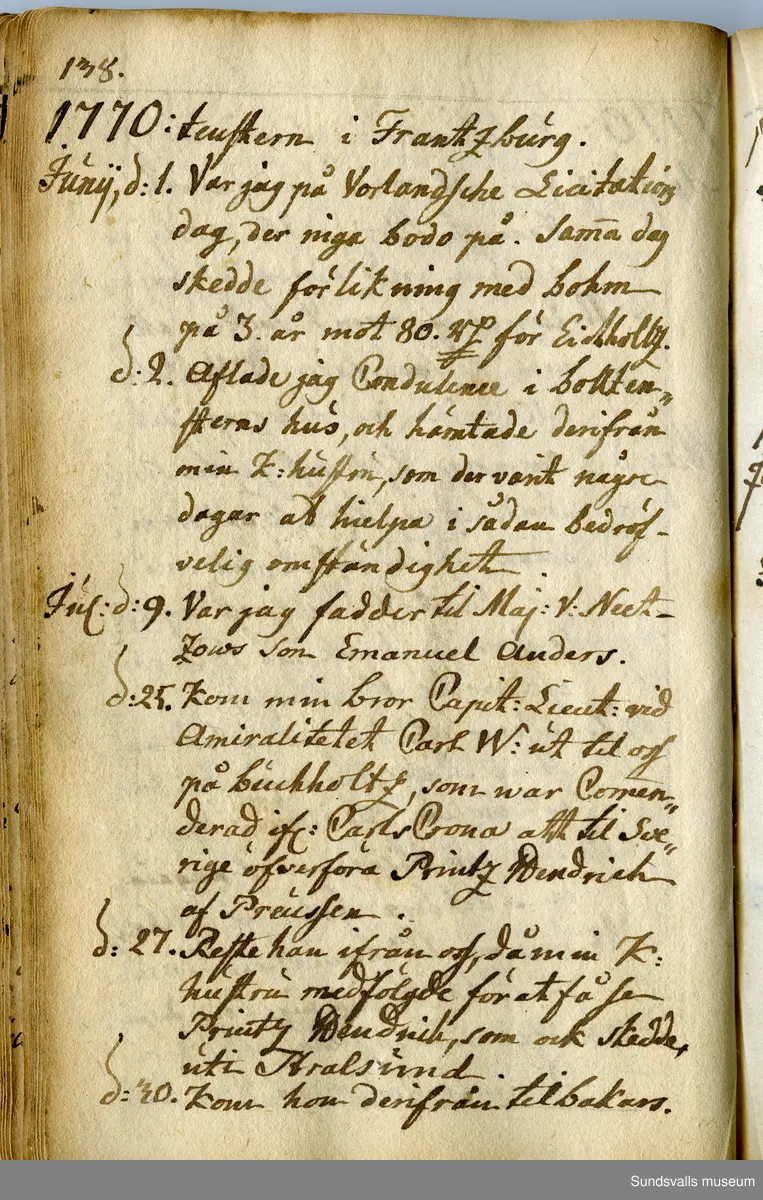 138.
1770: teustern i Frantzburg.
Junij, d: 1. Var jag på Vorlandsche Licitation
dag, der niga bodo på. Samma dag
skedde förlikning med bohm
på 3. år mot 80. för Eichholtz.
d: 2. Aflade jag Condulence i boltten„
sterns hus, och hämtade derifrån
min K: hustru, som der varit någre
dagar at hielpa i sådan bedröf-
velig omständighet
Jul: d: 9. Var jag fadder til Maj: V: Neet-
zows son Emanuel Anders.
d: 25. Kom min bror Capit: Lieut: vid
Amiralitetet Carl W: ut til oss
på buchholtz, som war Commen„
derad ifr: Carls Crona att til Sve„
rige öfverföra Printz Hendrich
af Preussen.
d: 27. Reste han ifrån oss, då min K:
hustru medfölgde för at få se
Printz Hendrich, som ock skedde,
uti Stralsund.
d: 30. Kom hon derifrån tilbakars.
Sundsvalls museum